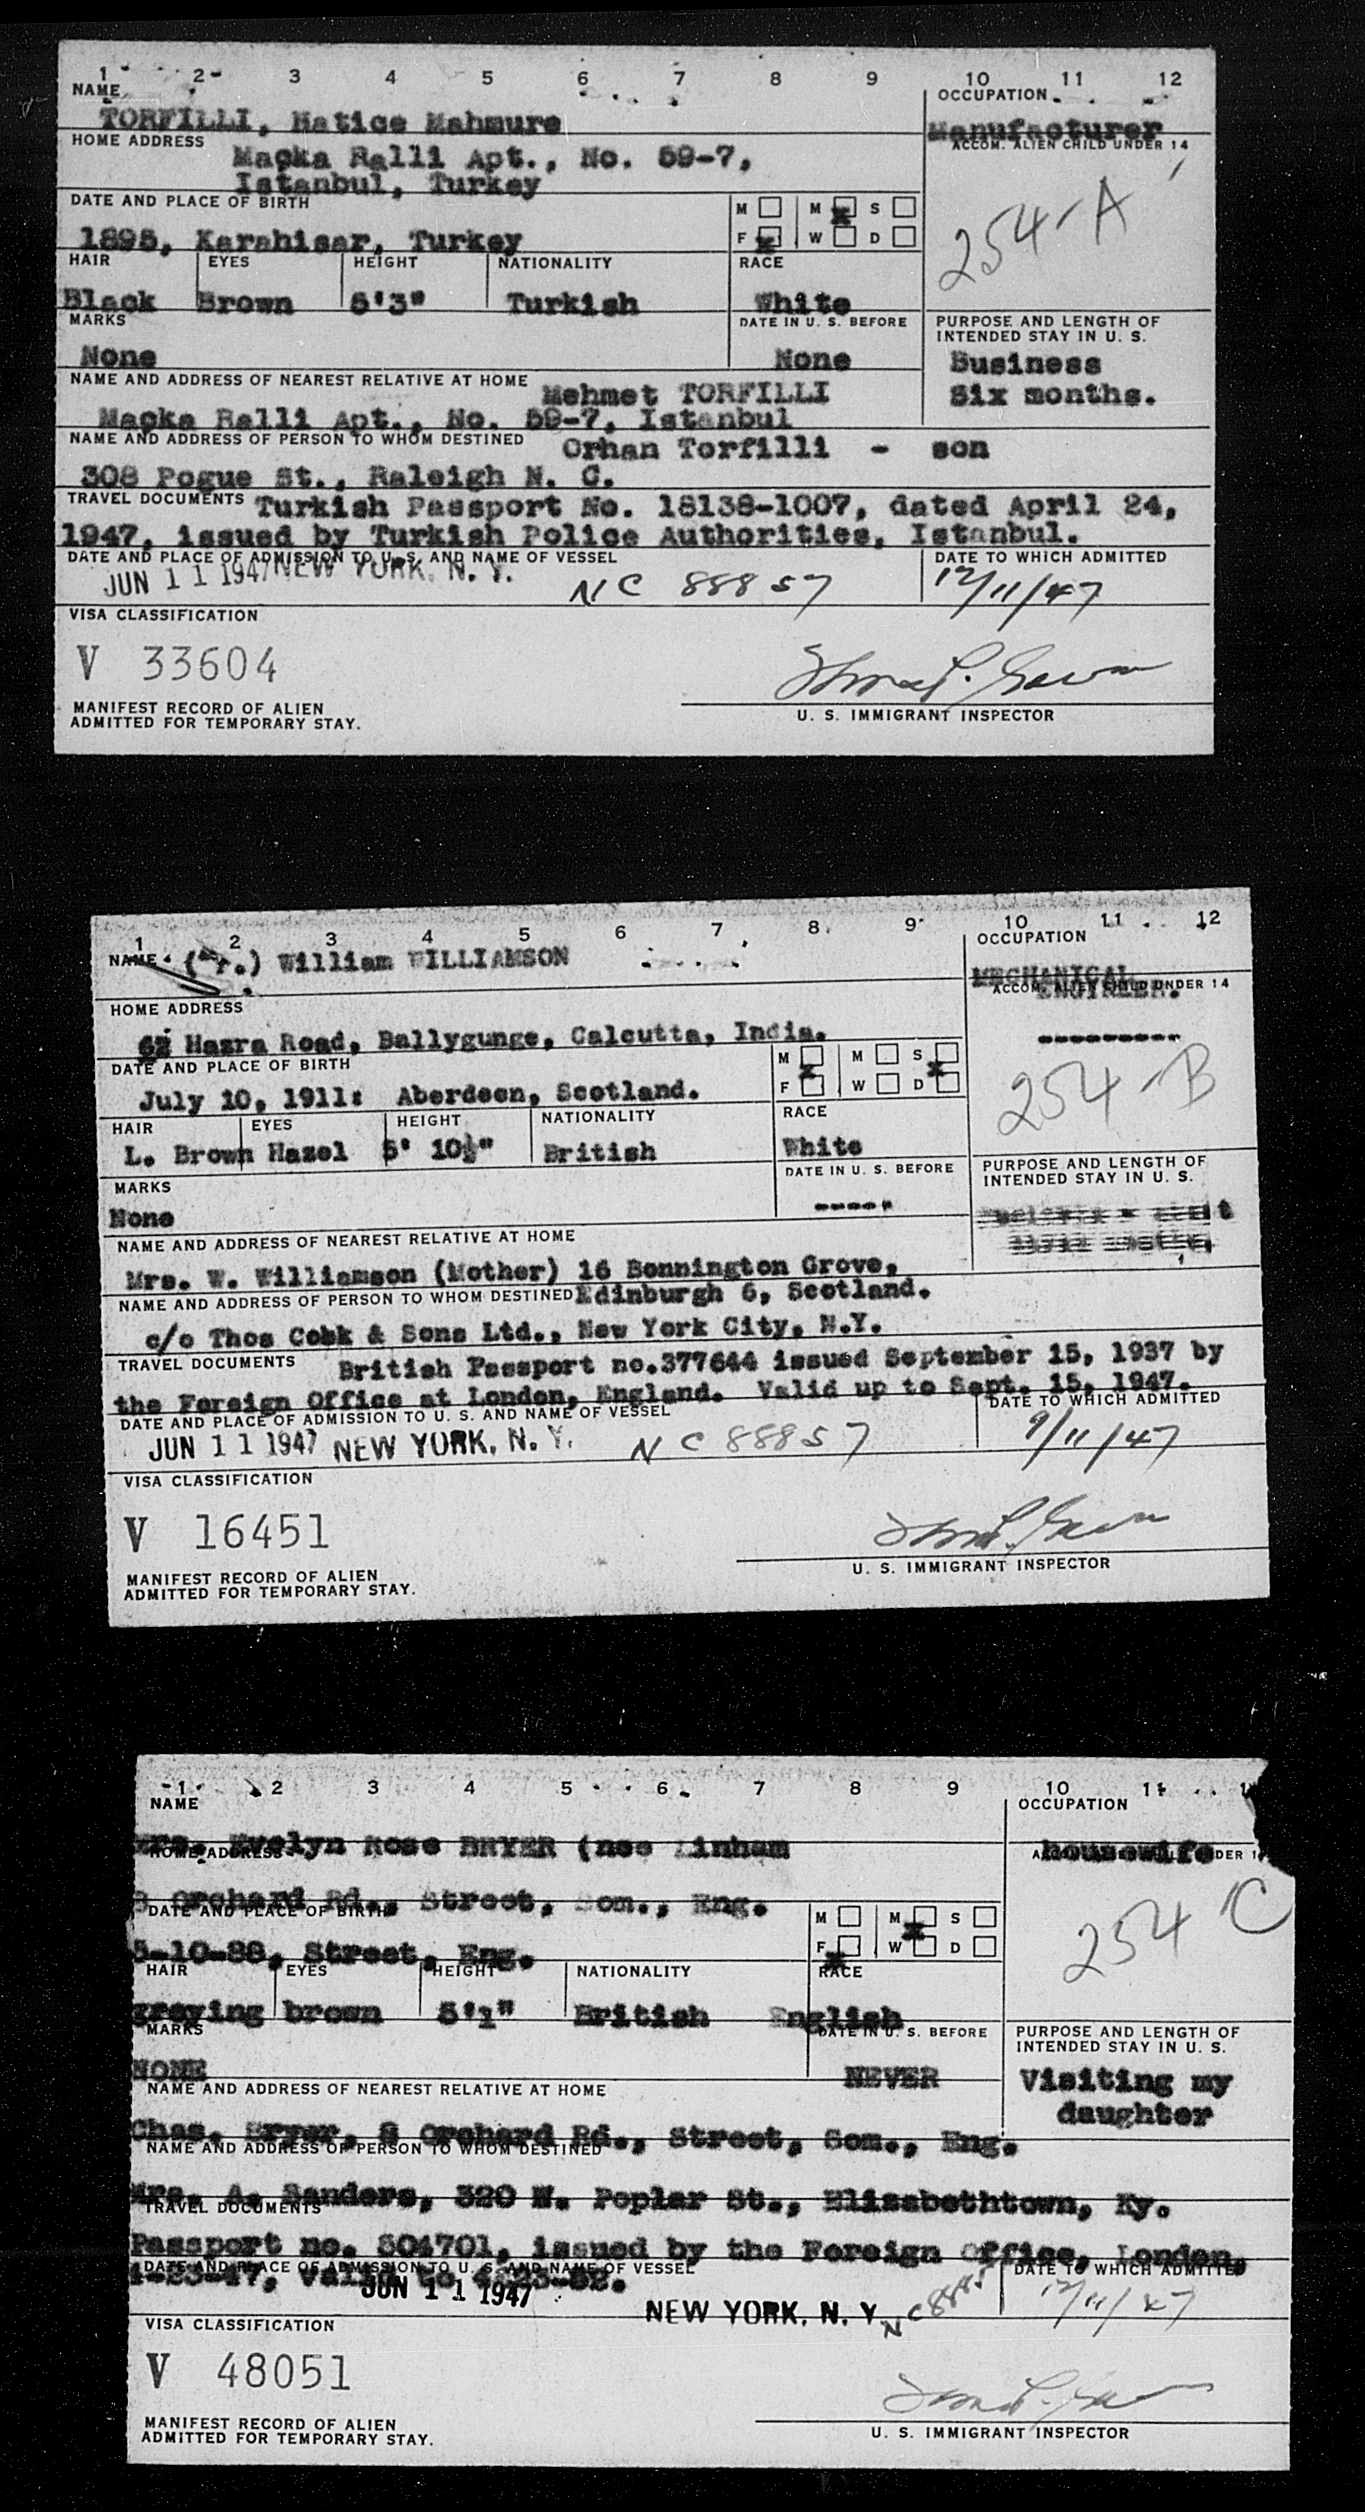 1 2 3 4 5 6 7 8 9 10 11 12
NAME OCCUPATION
TORFILLI, Hatice Mahmure Manufacturer
HOME ADDRESS ACCOM. ALIEN CHILD UNDER 14
Maçka Ralli Apt., No. 59-7,
Istanbul, Turkey
254-A
DATE AND PLACE OF BIRTH M M S
1895, Karahisar, Turkey F W D
HAIR EYES HEIGHT NATIONALITY RACE
Black Brown 5'3" Turkish White
MARKS DATE IN U. S. BEFORE PURPOSE AND LENGTH OF
INTENDED STAY IN U. S.
None None Business
NAME AND ADDRESS OF NEAREST RELATIVE AT HOME Mehmet TORFILLI Six months.
Maçka Ralli Apt., No. 59-7, Istanbul
NAME AND ADDRESS OF PERSON TO WHOM DESTINED Orhan Torfilli - son
308 Pogue St., Raleigh N. C.
TRAVEL DOCUMENTS Turkish Passport No. 18138-1007, dated April 24,
1947, issued by Turkish Police Authorities, Istanbul.
DATE AND PLACE OF ADMISSION TO U. S. AND NAME OF VESSEL DATE TO WHICH ADMITTED
JUN 11 1947 NEW YORK, N. Y. NC 88857 12/11/47
VISA CLASSIFICATION
V 33604
MANIFEST RECORD OF ALIEN
ADMITTED FOR TEMPORARY STAY.
U. S. IMMIGRANT INSPECTOR
1 2 3 4 5 6 7 8 9 10 11 12
NAME (Mr.) William WILLIAMSON OCCUPATION
MECHANICAL
ENGINEER.
HOME ADDRESS ACCOM. ALIEN CHILD UNDER 14
62 Hazra Road, Ballygunge, Calcutta, India. ----------
254-B
DATE AND PLACE OF BIRTH M M S
July 10, 1911: Aberdeen, Scotland. F W D
HAIR EYES HEIGHT NATIONALITY RACE
L. Brown Hazel 5' 10½" British White
MARKS DATE IN U. S. BEFORE PURPOSE AND LENGTH OF
INTENDED STAY IN U. S.
None -----
NAME AND ADDRESS OF NEAREST RELATIVE AT HOME
Mrs. W. Williamson (Mother) 16 Bonnington Grove,
NAME AND ADDRESS OF PERSON TO WHOM DESTINED Edinburgh 6, Scotland.
c/o Thos Cook & Sons Ltd., New York City, N.Y.
TRAVEL DOCUMENTS British Passport no.377644 issued September 15, 1937 by
the Foreign Office at London, England. Valid up to Sept. 15, 1947.
DATE AND PLACE OF ADMISSION TO U. S. AND NAME OF VESSEL DATE TO WHICH ADMITTED
JUN 11 1947 NEW YORK, N. Y. NC 88857 9/11/47
VISA CLASSIFICATION
V 16451
MANIFEST RECORD OF ALIEN
ADMITTED FOR TEMPORARY STAY.
U. S. IMMIGRANT INSPECTOR
1 2 3 4 5 6 7 8 9 10 11
NAME OCCUPATION
Mrs. Evelyn Rose BRYER (nee Linham housewife
HOME ADDRESS
8 Orchard Rd., Street, Som., Eng.
254 C
DATE AND PLACE OF BIRTH M M S
5-10-88, Street, Eng. F W D
HAIR EYES HEIGHT NATIONALITY RACE
greying brown 5'1" British English
MARKS DATE IN U. S. BEFORE PURPOSE AND LENGTH OF
INTENDED STAY IN U. S.
NONE NEVER Visiting my
NAME AND ADDRESS OF NEAREST RELATIVE AT HOME daughter
Chas. Bryer, 8 Orchard Rd., Street, Som., Eng.
NAME AND ADDRESS OF PERSON TO WHOM DESTINED
Mrs. A. Sanders, 320 W. Poplar St., Elizabethtown, Ky.
TRAVEL DOCUMENTS
Passport no. 304701, issued by the Foreign Office, London,
DATE AND PLACE OF ADMISSION TO U. S. AND NAME OF VESSEL DATE TO WHICH ADMITTED
JUN 11 1947 NEW YORK, N. Y. 12/11/47
VISA CLASSIFICATION
V 48051
MANIFEST RECORD OF ALIEN
ADMITTED FOR TEMPORARY STAY.
U. S. IMMIGRANT INSPECTOR